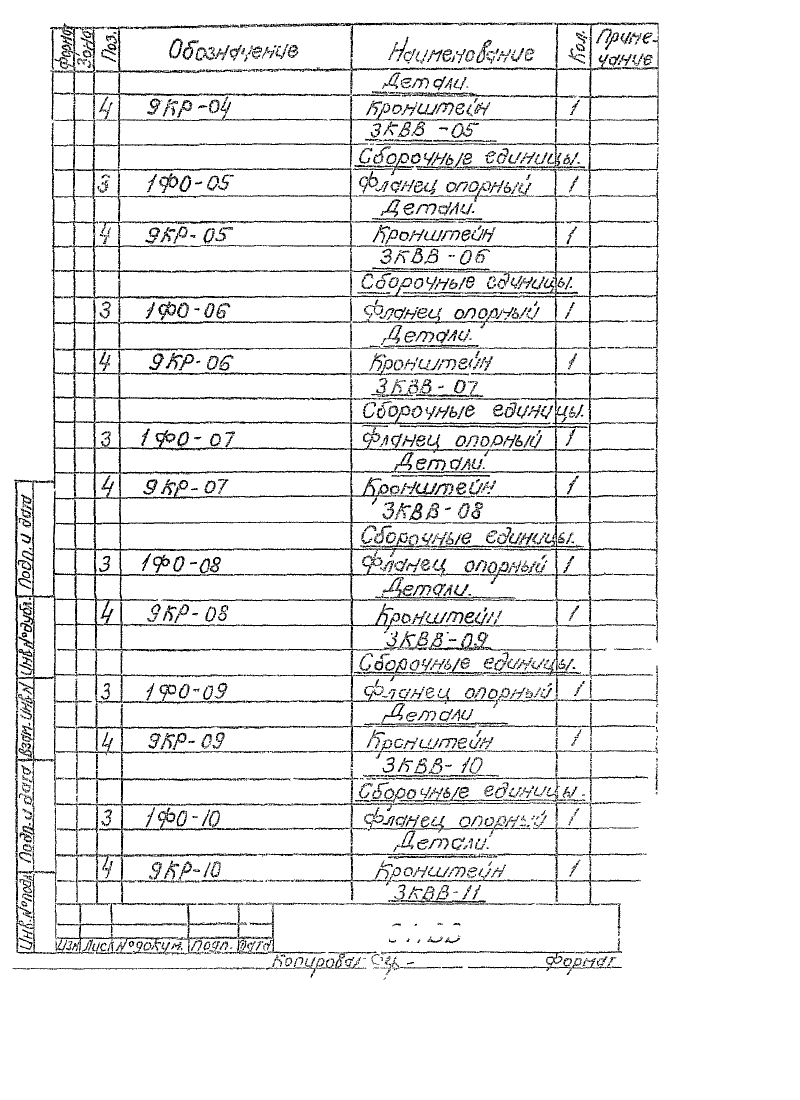 Формат Зона Поз. Обозначение Наименование Кол. Приме-
чание
Детали.
4 9КР-04 Кронштейн 1
3КВВ-05
Сборочные единицы.
3 1ФО-05 Фланец опорный 1
Детали.
4 9КР-05 Кронштейн 1
3КВВ-06
Сборочные единицы.
3 1ФО-06 Фланец опорный 1
Детали.
4 9КР-06 Кронштейн 1
3КВВ-07
Сборочные единицы.
3 1ФО-07 Фланец опорный 1
Детали.
4 9КР-07 Кронштейн 1
3КВВ-08
Сборочные единицы.
3 1ФО-08 Фланец опорный 1
Детали.
4 9КР-08 Кронштейн 1
3КВВ-09
Сборочные единицы.
3 1ФО-09 Фланец опорный 1
Детали
4 9КР-09 Кронштейн 1
3КВВ-10
Сборочные единицы.
3 1ФО-10 Фланец опорный 1
Детали.
4 9КР-10 Кронштейн 1
3КВВ-11
Инв.№подл. Подп. и дата Взам. инв.№ Инв.№дубл. Подп. и дата
Изм Лист №докум. Подп. Дата
Копировал Формат